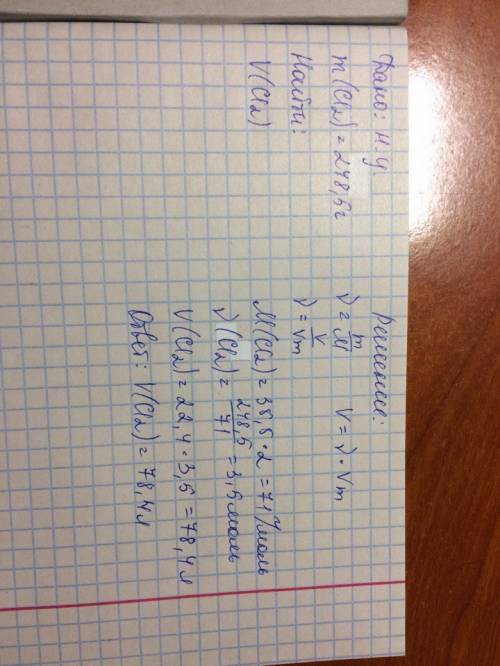 Дано: н.у.
m(Cl2) = 248,5г
Найти:
V(Cl2)
Решение:
ν = m/M V = ν · Vm
ν = V/Vm
M(Cl2) = 35,5 · 2 = 71 г/моль
ν(Cl2) = 248,5/71 = 3,5 моль
V(Cl2) = 22,4 · 3,5 = 78,4 л
Ответ: V(Cl2) = 78,4 л